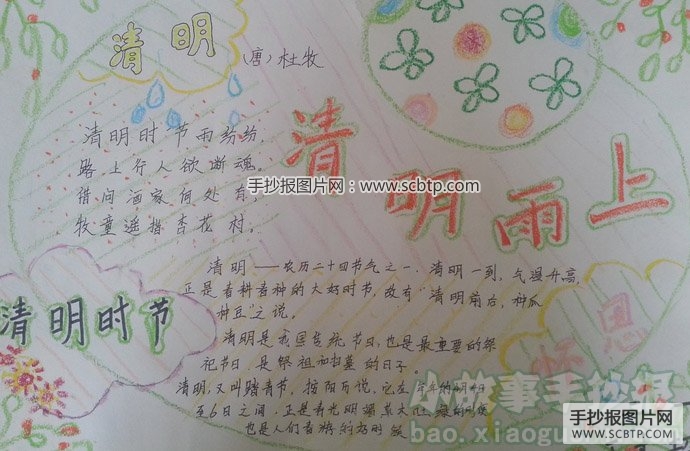 清明
(唐)杜牧
清明时节雨纷纷,
路上行人欲断魂。
借问酒家何处有,
牧童遥指杏花村。
清明雨上
手抄报图片网:www.scbtp.com
清明——农历二十四节气之一,清明一到,气温升高,
正是春耕春种的大好时节,故有“清明前后,种瓜
种豆”之说。
清明时节
清明是我国传统节日,也是最重要的祭
祀节日,是祭祖和扫墓的日子。
怀恩
清明,又叫踏青节,按阳历说,它在每年的4月4日
至6日之间,正是春光明媚草木
也是人们春游的好时
小故事手抄报
bao.xiaogu
手抄报图片网
WWW.SCBTP.COM